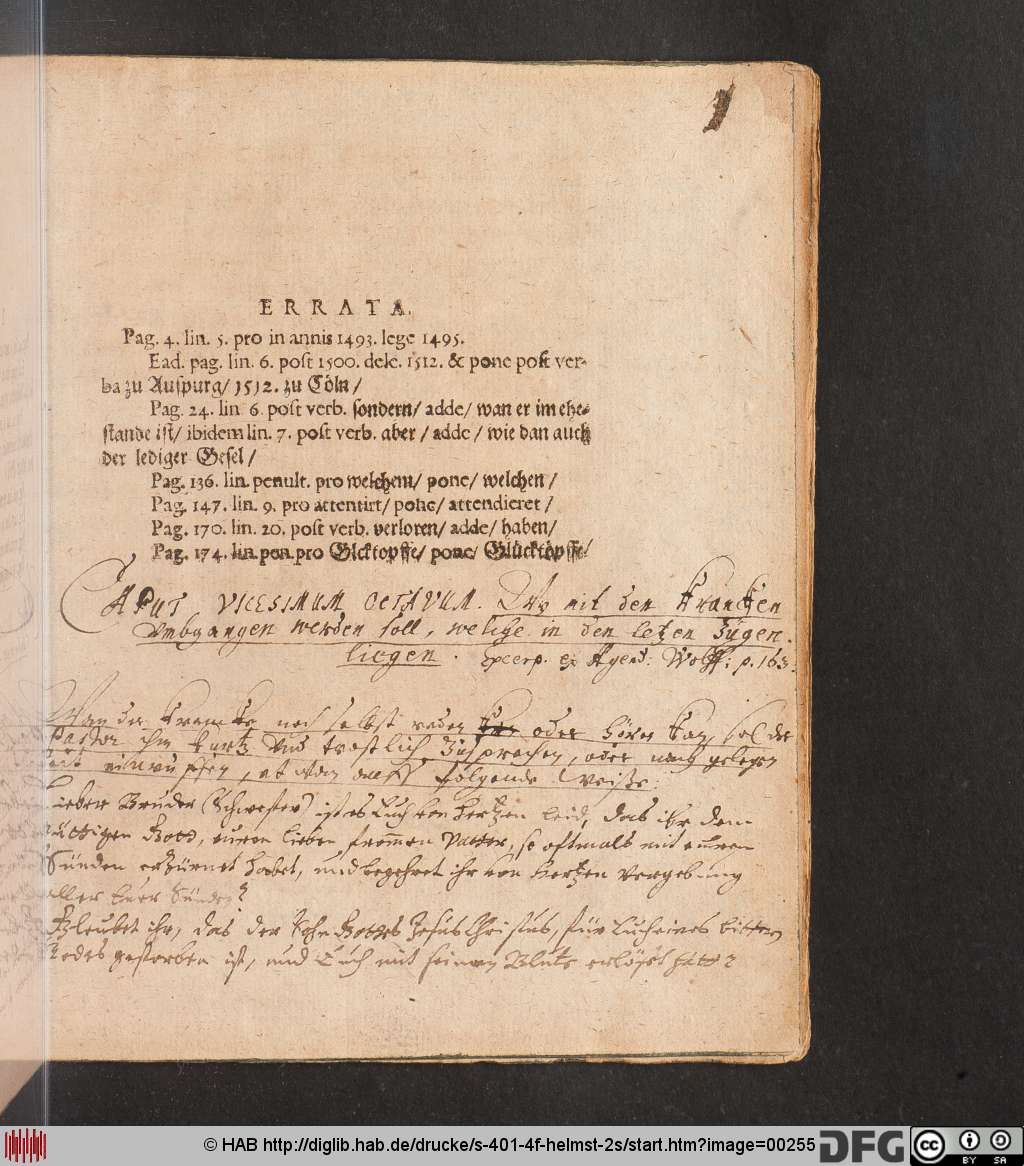 ERRATA.
Pag. 4. lin. 5. pro in annis 1493. lege 1495.
Ead. pag. lin. 6. poſt 1500. dele. 1512. & pone poſt ver-
ba zu Auſpurg/ 1512. zu Cöln/
Pag. 24. lin 6. poſt verb. ſondern/ adde/ wan er im ehe-
ſtande iſt/ ibidem lin. 7. poſt verb. aber/ adde/ wie dan auch
der lediger Geſel/
Pag. 136. lin. penult. pro welchem/ pone/ welchen/
Pag. 147. lin. 9. pro attentirt/ pone/ attendieret/
Pag. 170. lin. 20. poſt verb. verloren/ adde/ haben/
Pag. 174. lin. pen. pro Glcktöpffe/ pone/ Glücktöpffe/
CAPUT VICESIMUM OCTAVUM. Wie mit den Krancken
umbgangen werden soll, welche in den letzen Zügen
liegen. excerp. ex Agend: Wolff: p. 163.
Wan der Krancke noch selbst reden oder hören kan, sol der
Pastor ihm kurtz und trostlich Zusprechen, oder nach gelegen
auff folgende Weiße:
Lieber Bruder (Schwester) ist es Euch von Hertzen leid, das ihr dem
güttigen Gott, euren lieben frommen Vatter, so oftmals mit euren
Sünden erzürnet habet, und begehret ihr von Hertzen vergebung
aller Euer Sünden?
Gleubet ihr, das der Sohn Gottes Jesus Christus, für Euch eines bittern
Todes gestorben ist, und Euch mit seinem Blute erlöset hatt?
© HAB http://diglib.hab.de/drucke/s-401-4f-helmst-2s/start.htm?image=00255
DFG
cc BY SA